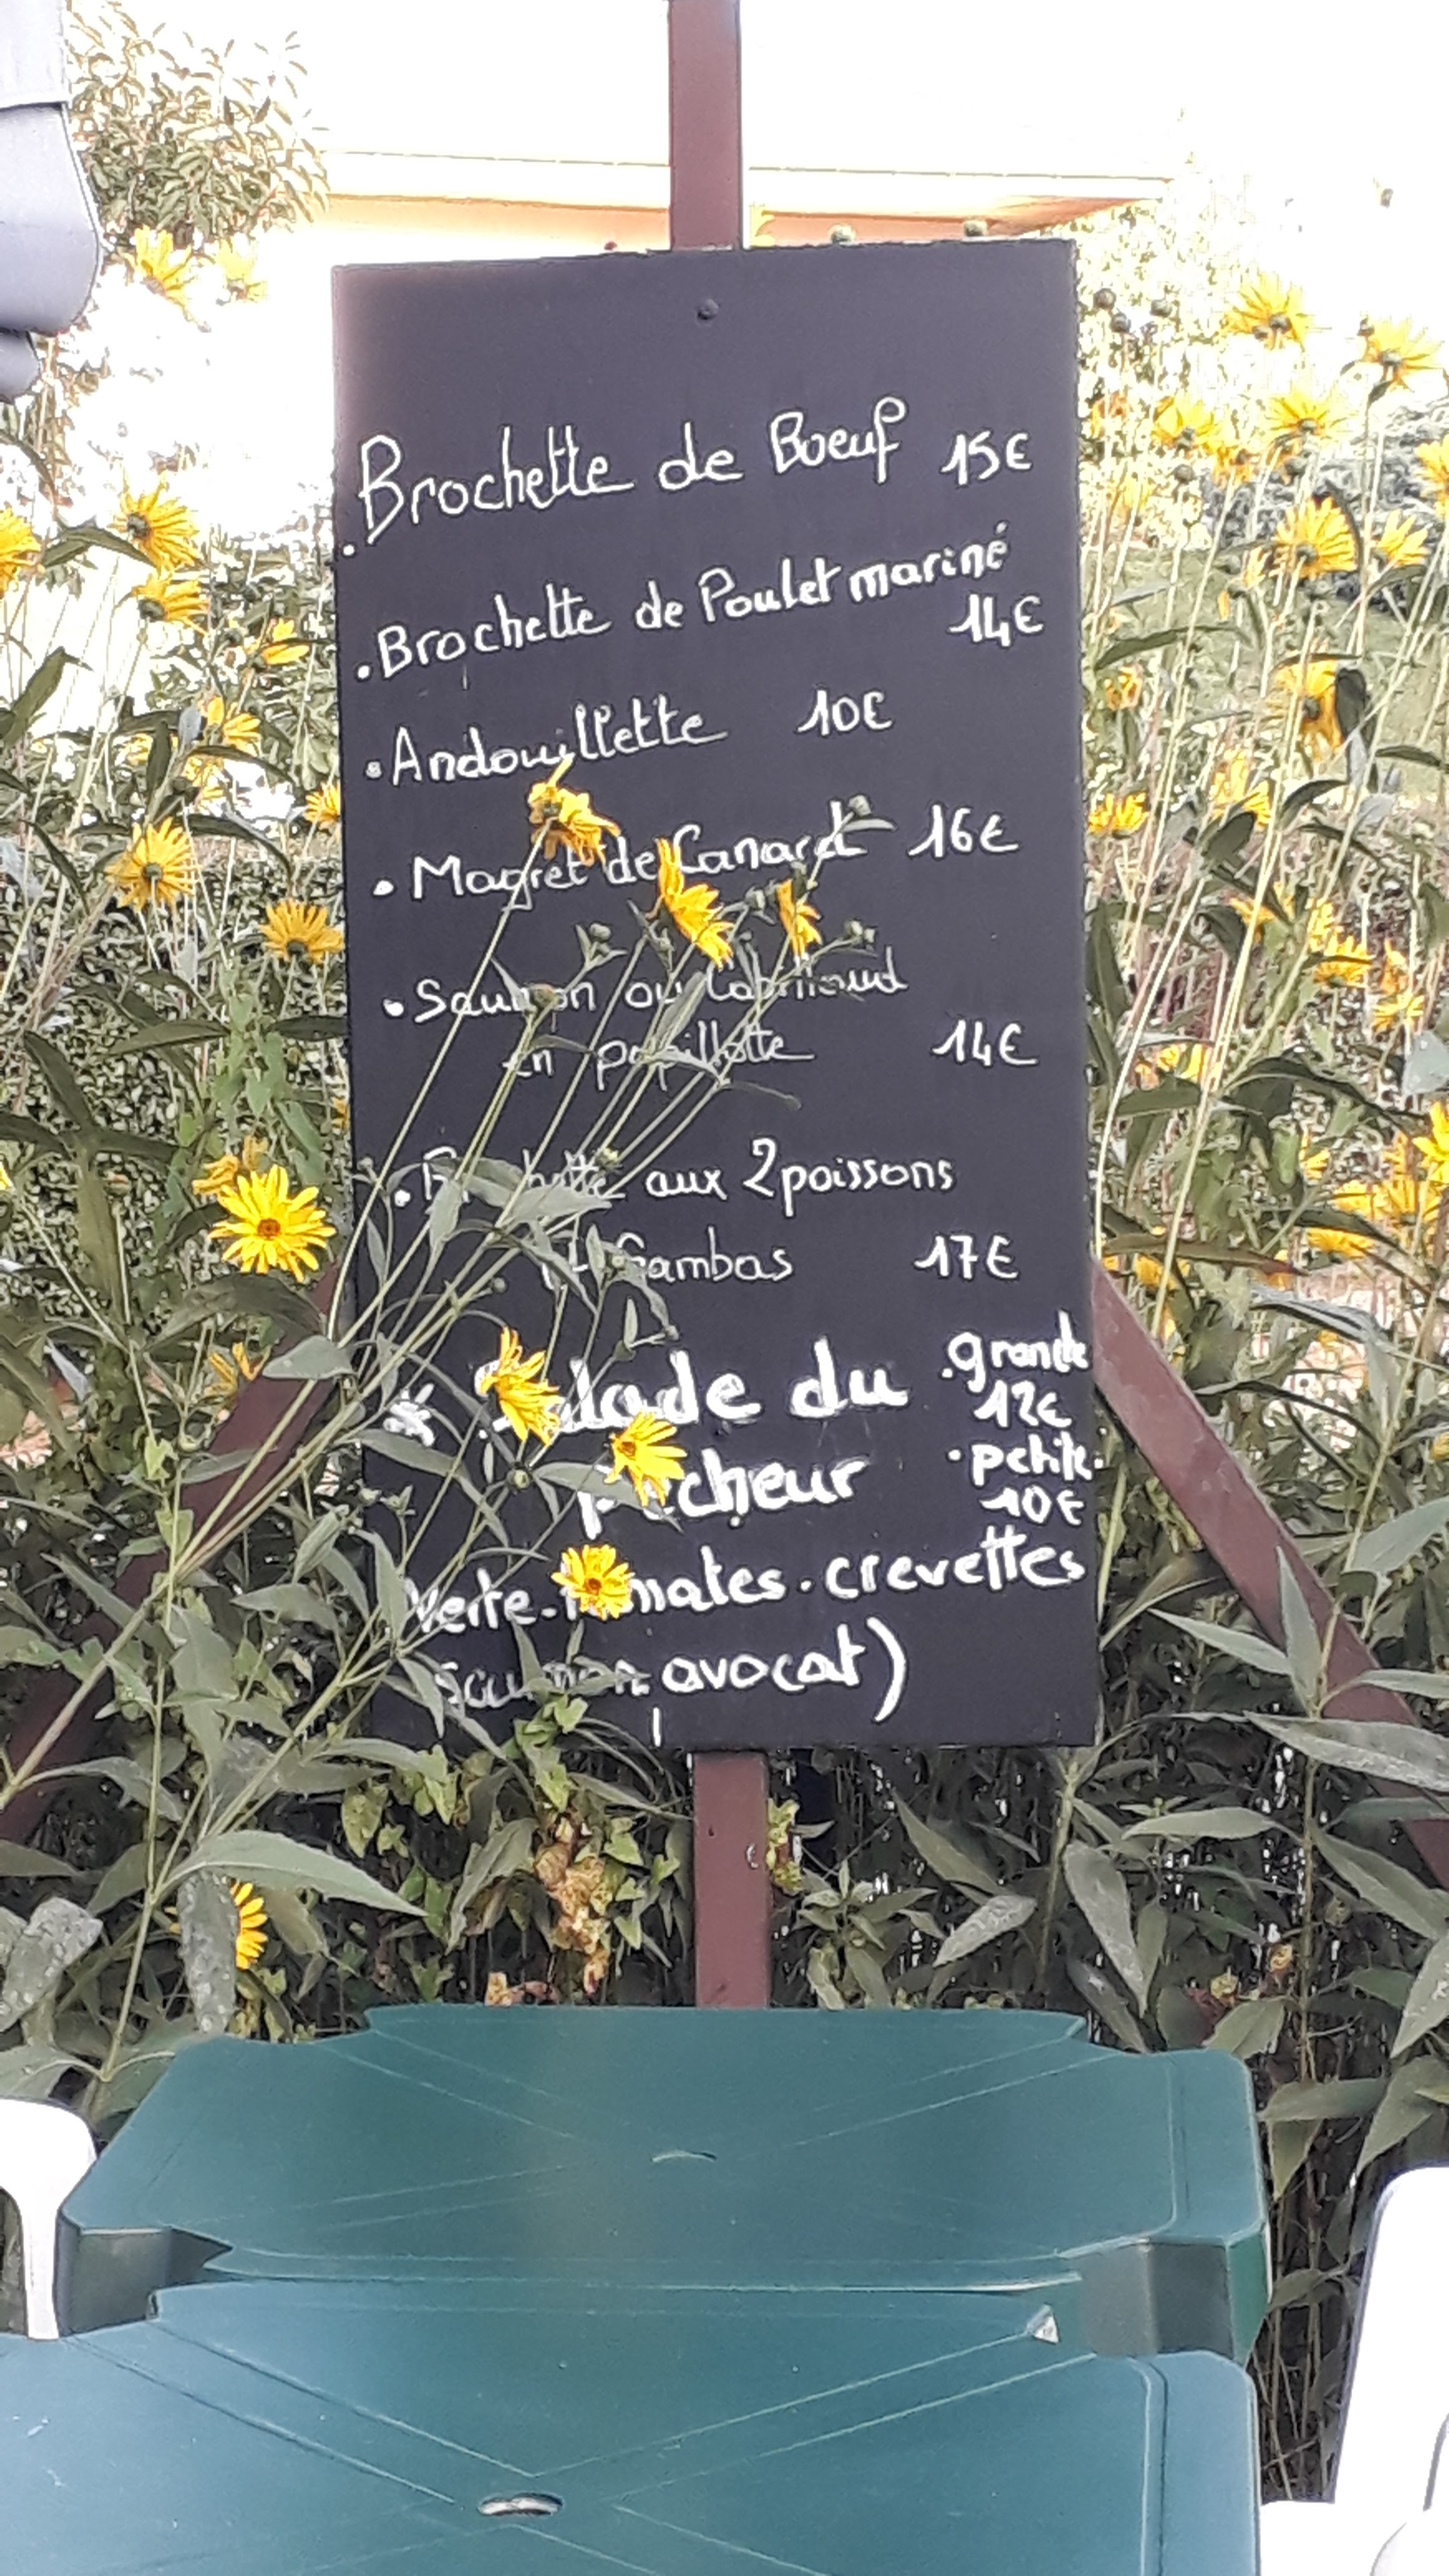 . Brochette de Boeuf 15€
. Brochette de Poulet mariné
14€
. Andouillette 10€
. Magret de Canard 16€
. Saumon ou Cabillaud
en papillotte 14€
. Brochette aux 2 poissons
Gambas 17€
* Salade du
pêcheur
. grande
12€
. petite.
10€
verte. tomates. crevettes
saumon. avocat)